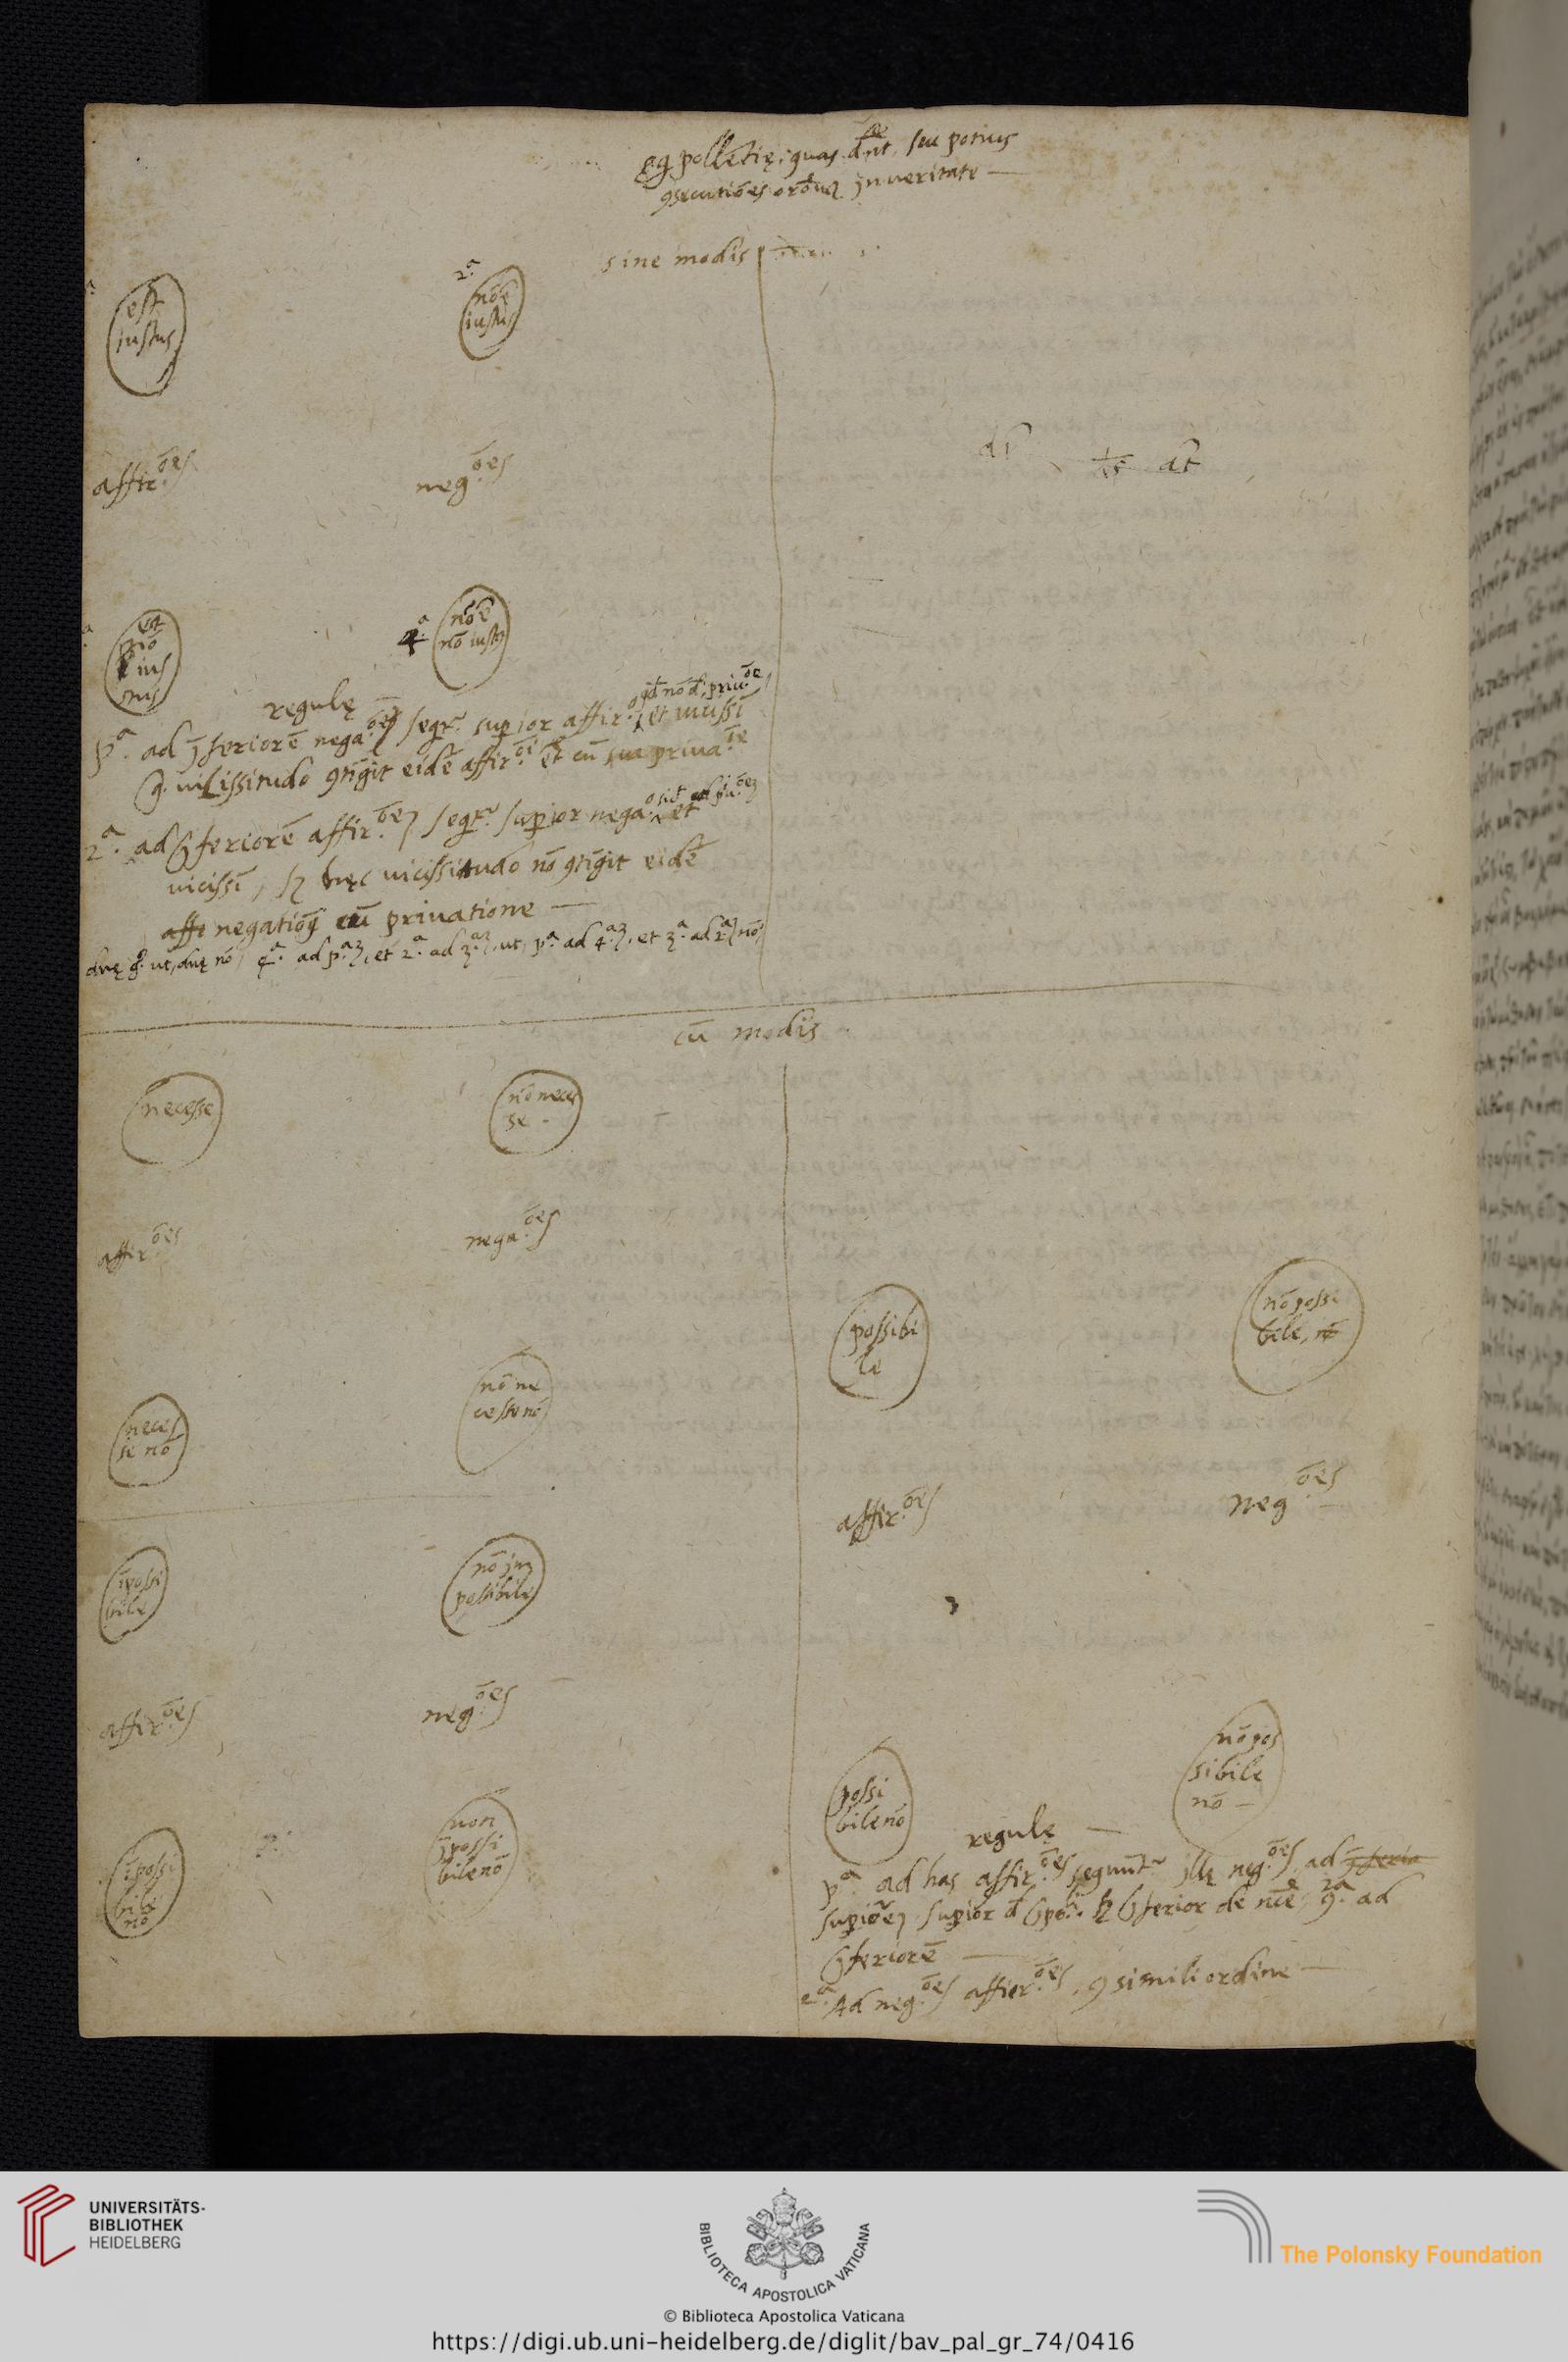 seu potius
or̄ōnē in ueritate
sine modis
est
iustus
2ᵃ
nō ē
iustus
affir.ōes
neg.ōes
est
nō
ius
tus
4ᵃ
nō ē
nō iust9
regulę
pᵃ. ad īferiorē nega.ōeȝ seqr̃. supior affir.o et uicissī
uicissitudo 9tīgit eidē affir.ōi priua.ōe
2ᵃ. ad īferiorē affir.ōeȝ seqr̃. supior nega.o et
uicissī, sȝ hęc uicissitudo nō 9tīgit eidē
negatiōī cū priuatione —
4ᵃ. ad pᵃȝ, et 2ᵃ. ad 3ᵃȝ, ut, pᵃ ad 4ᵃȝ, et 3ᵃ. ad 2ᵃȝ nō
cū modis
necesse
nō neces
se
affir.ōes
nega.ōes
neces
se nō
nō ne
cesse nō
possibi
le
nō possi
bile,
affir.ōes
neg.ōes
īpossi
bile
nō im
possibile
affir.ōes
neg.ōes
īpossi
bile
nō
non
īpossi
bile nō
possi
bile nō
nō pos
sibile
nō —
regulę —
pᵃ ad has affir.ōes sequūt̃ illę neg.ōes, ad
supiorēȝ supior sȝ īferior de ad
īferiorē —
2ᵃ. Ad neg.ōes affir.ōes, 9simili ordine —
UNIVERSITÄTS-
BIBLIOTHEK
HEIDELBERG
BIBLIOTECA APOSTOLICA VATICANA
The Polonsky Foundation
© Biblioteca Apostolica Vaticana
https://digi.ub.uni-heidelberg.de/diglit/bav_pal_gr_74/0416